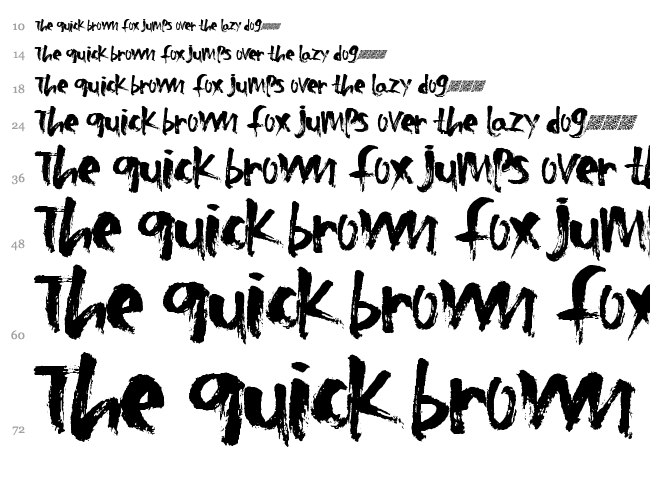 10 The quick brown fox jumps over the lazy dog
14 The quick brown fox jumps over the lazy dog
18 The quick brown fox jumps over the lazy dog
24 The quick brown fox jumps over the lazy dog
36 The quick brown fox jumps over t
48 The quick brown fox jum
60 The quick brown fox
72 The quick brown